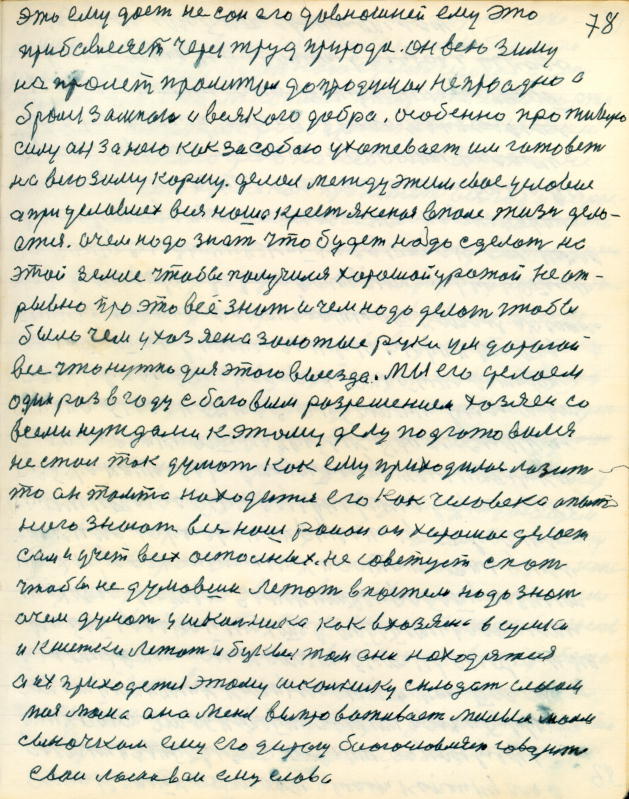 78
это ему дает не сон его домошней ему это
прибавляет через труд природа. он всю зиму
на пролет
бром запасы и всякого добра. особенно про тягвую
силу он за нею как за собою ухотевает им готовет
на всю зиму корму. делоя между этим свое условие
а при условиех вся наша крестяяская в поле жизн дело-
ется. очем надо знат что будет надо сделат на
этой земле чтобы получился хорошой урожой не от-
рывно про это всё знат и чем надо делат чтобы
было чем у хозяена золотые руки ум дорогой
все что нужно для этого выезда. Мы его делоем
один раз в году с баговым разрешением хозяен со
всеми нуждами к этому делу подготовился
не стал так думат как ему приходилос лазит
то он там та находится его как человека опыт
ного знают вся наш район он хорошое делоет
сам и учет всех остолных. не советует спат
чтобы не думовши лежат в постели надо знат
очем думат у школника как в хозяена в сумки
и книжки лежат и буквы там они находятся
а их приходется этому школнику складат слогом
моя мама она меня выпроваживает милым моим
сыночком ему его дорогу благословляет говарит
свои ласковаи ему слова